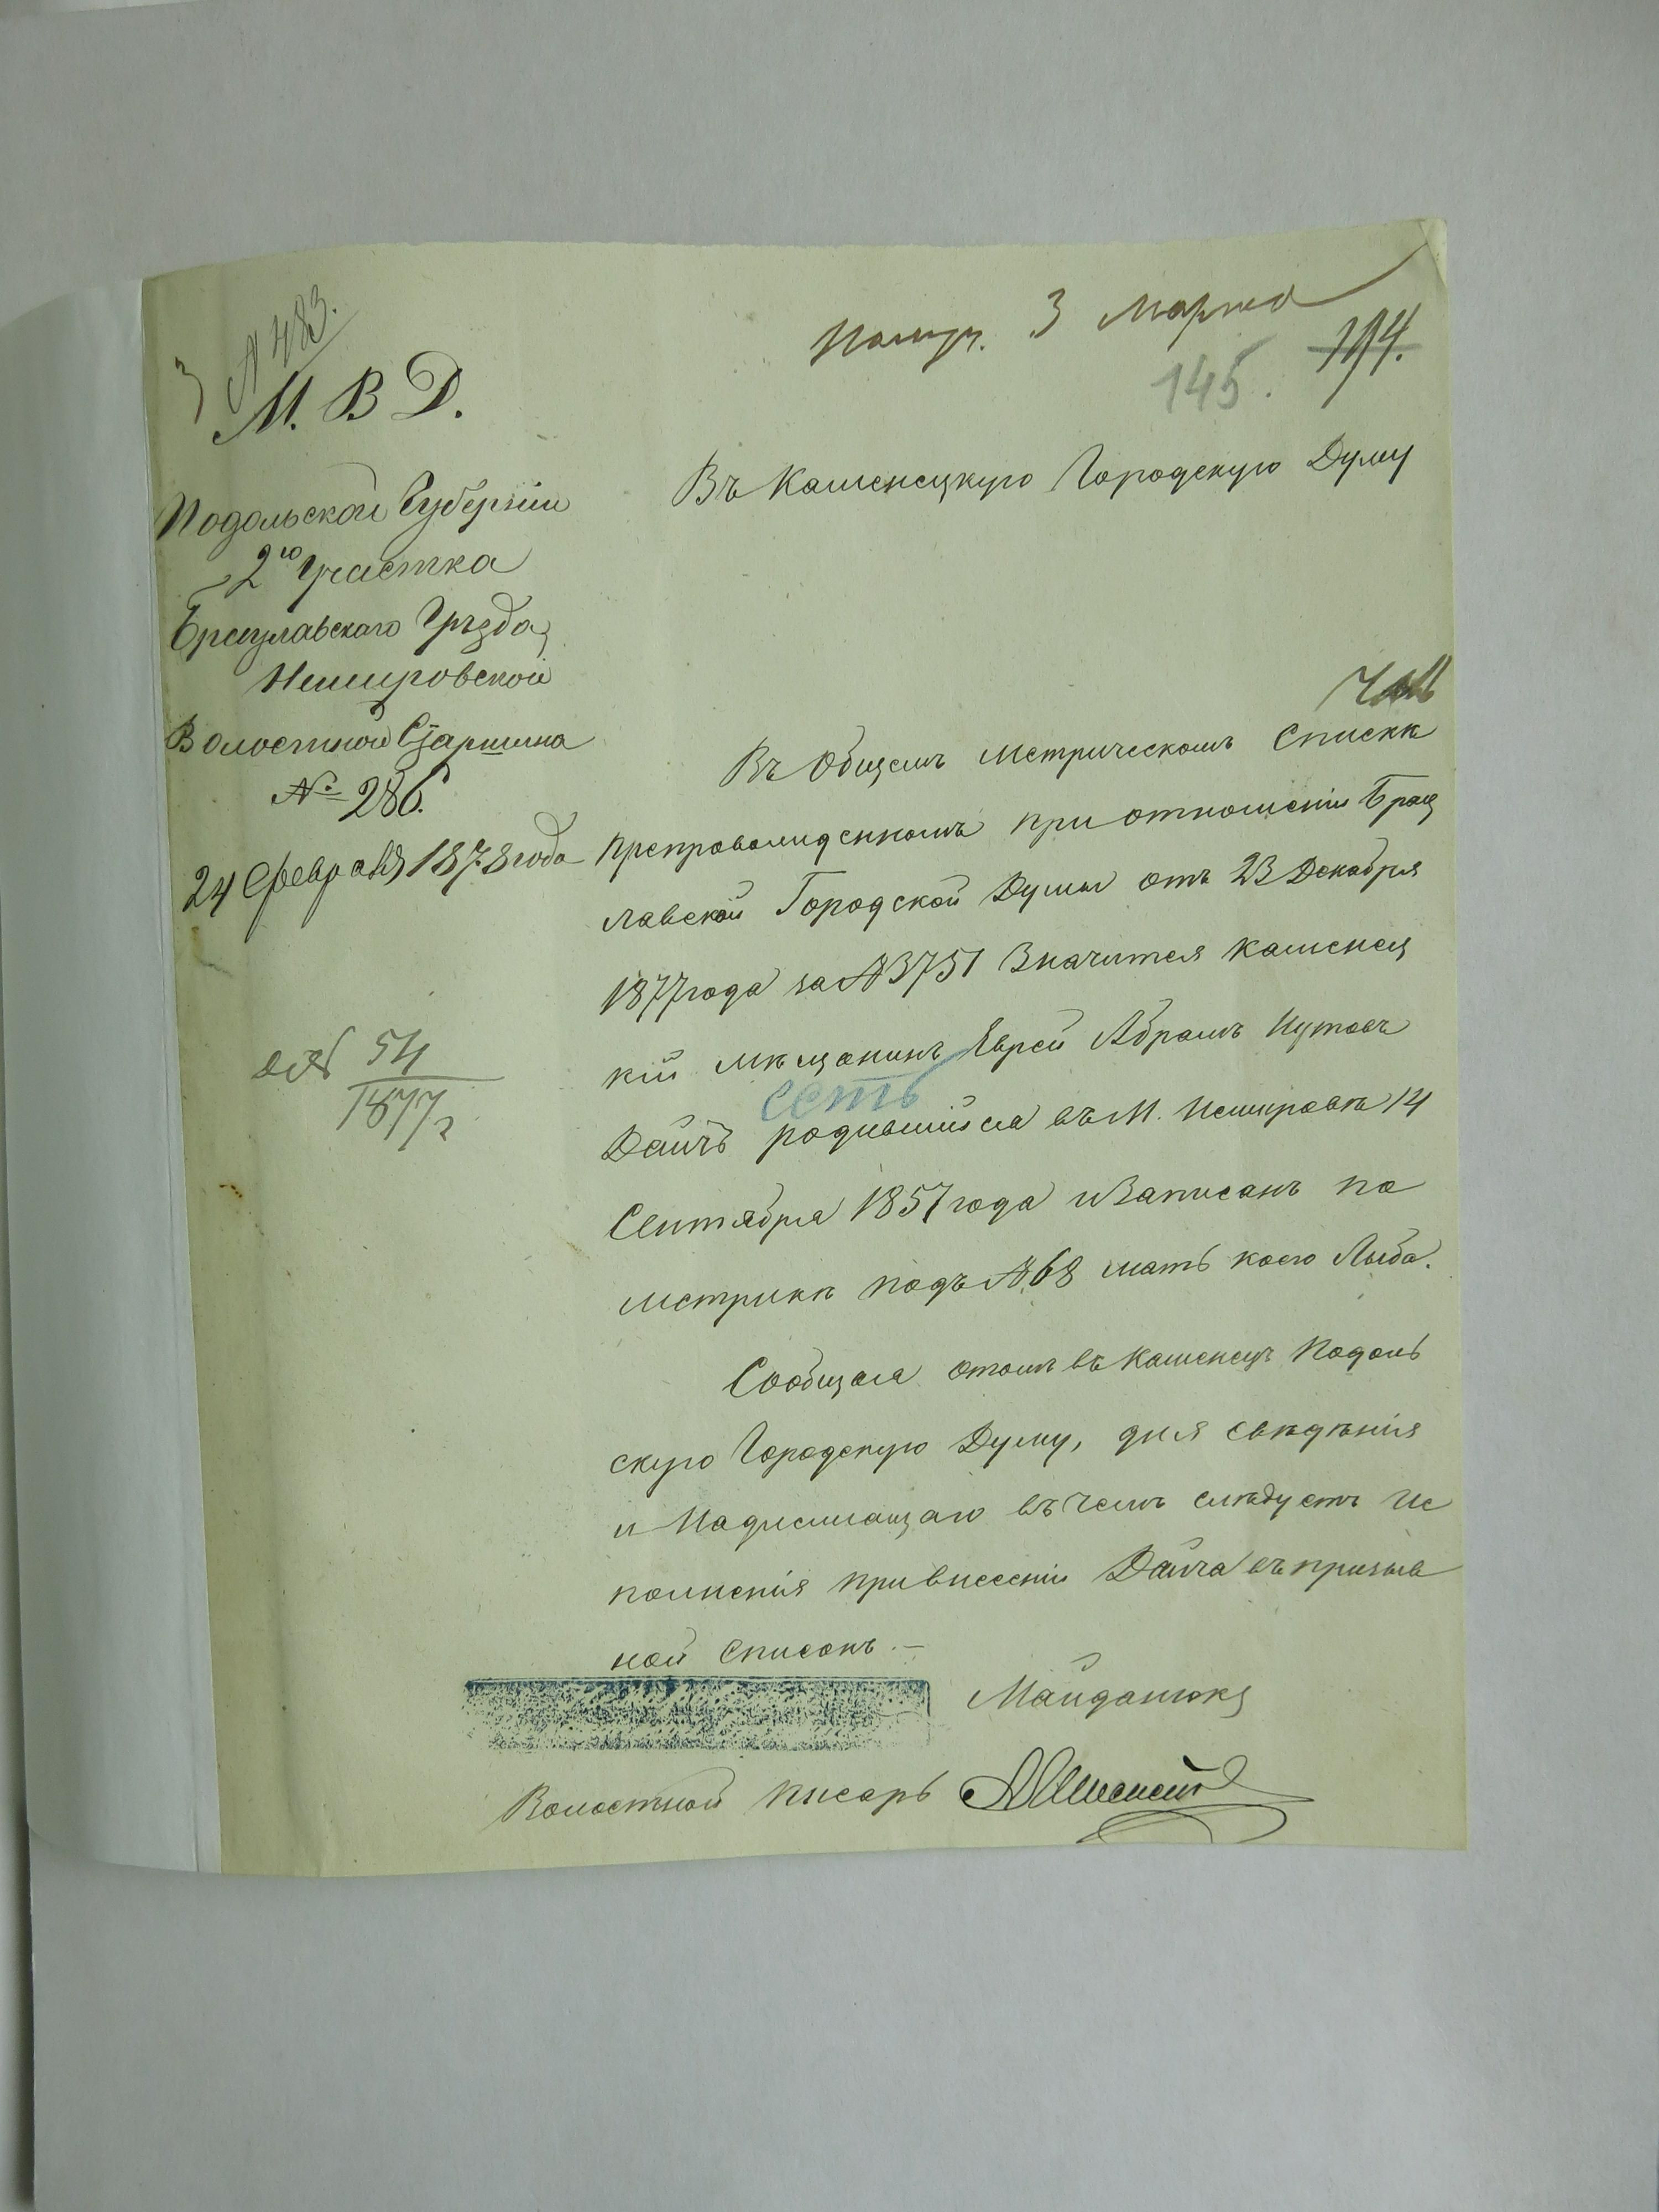 № 483.
Получ. 3 Марта
194.
145.
М. В Д.
Подольской Губерніи
2го Участка
Брацлавскаго Уѣзда
Немировской
Волостной Старшина
№ 286.
24 Февраля 1878 года
54
1877 г
Въ Каменецкую Городскую Думу
Въ Общемъ метрическомъ Спискѣ
препровожденномъ при отношеніи Брац
лавской Городской Думы отъ 23 Декабря
1877 года за № 3751 Значится каменец
кій мѣщанинъ Еврей Абрамъ
есть
Дайчъ родившийся въ М. Немировѣ 14
Сентября 1857 года и Записанъ по
метрикѣ подъ № 68 мать коего Лыба.
Сообщая отомъ въ Каменецъ Подоль
скую Городскую Думу, для свѣдѣнія
и Надлежащаго въ чемъ слѣдуетъ Ис
полненія при внесеніи Дайча въ призыв
ной Списокъ. —
Майданюкъ
Волостной Писарь